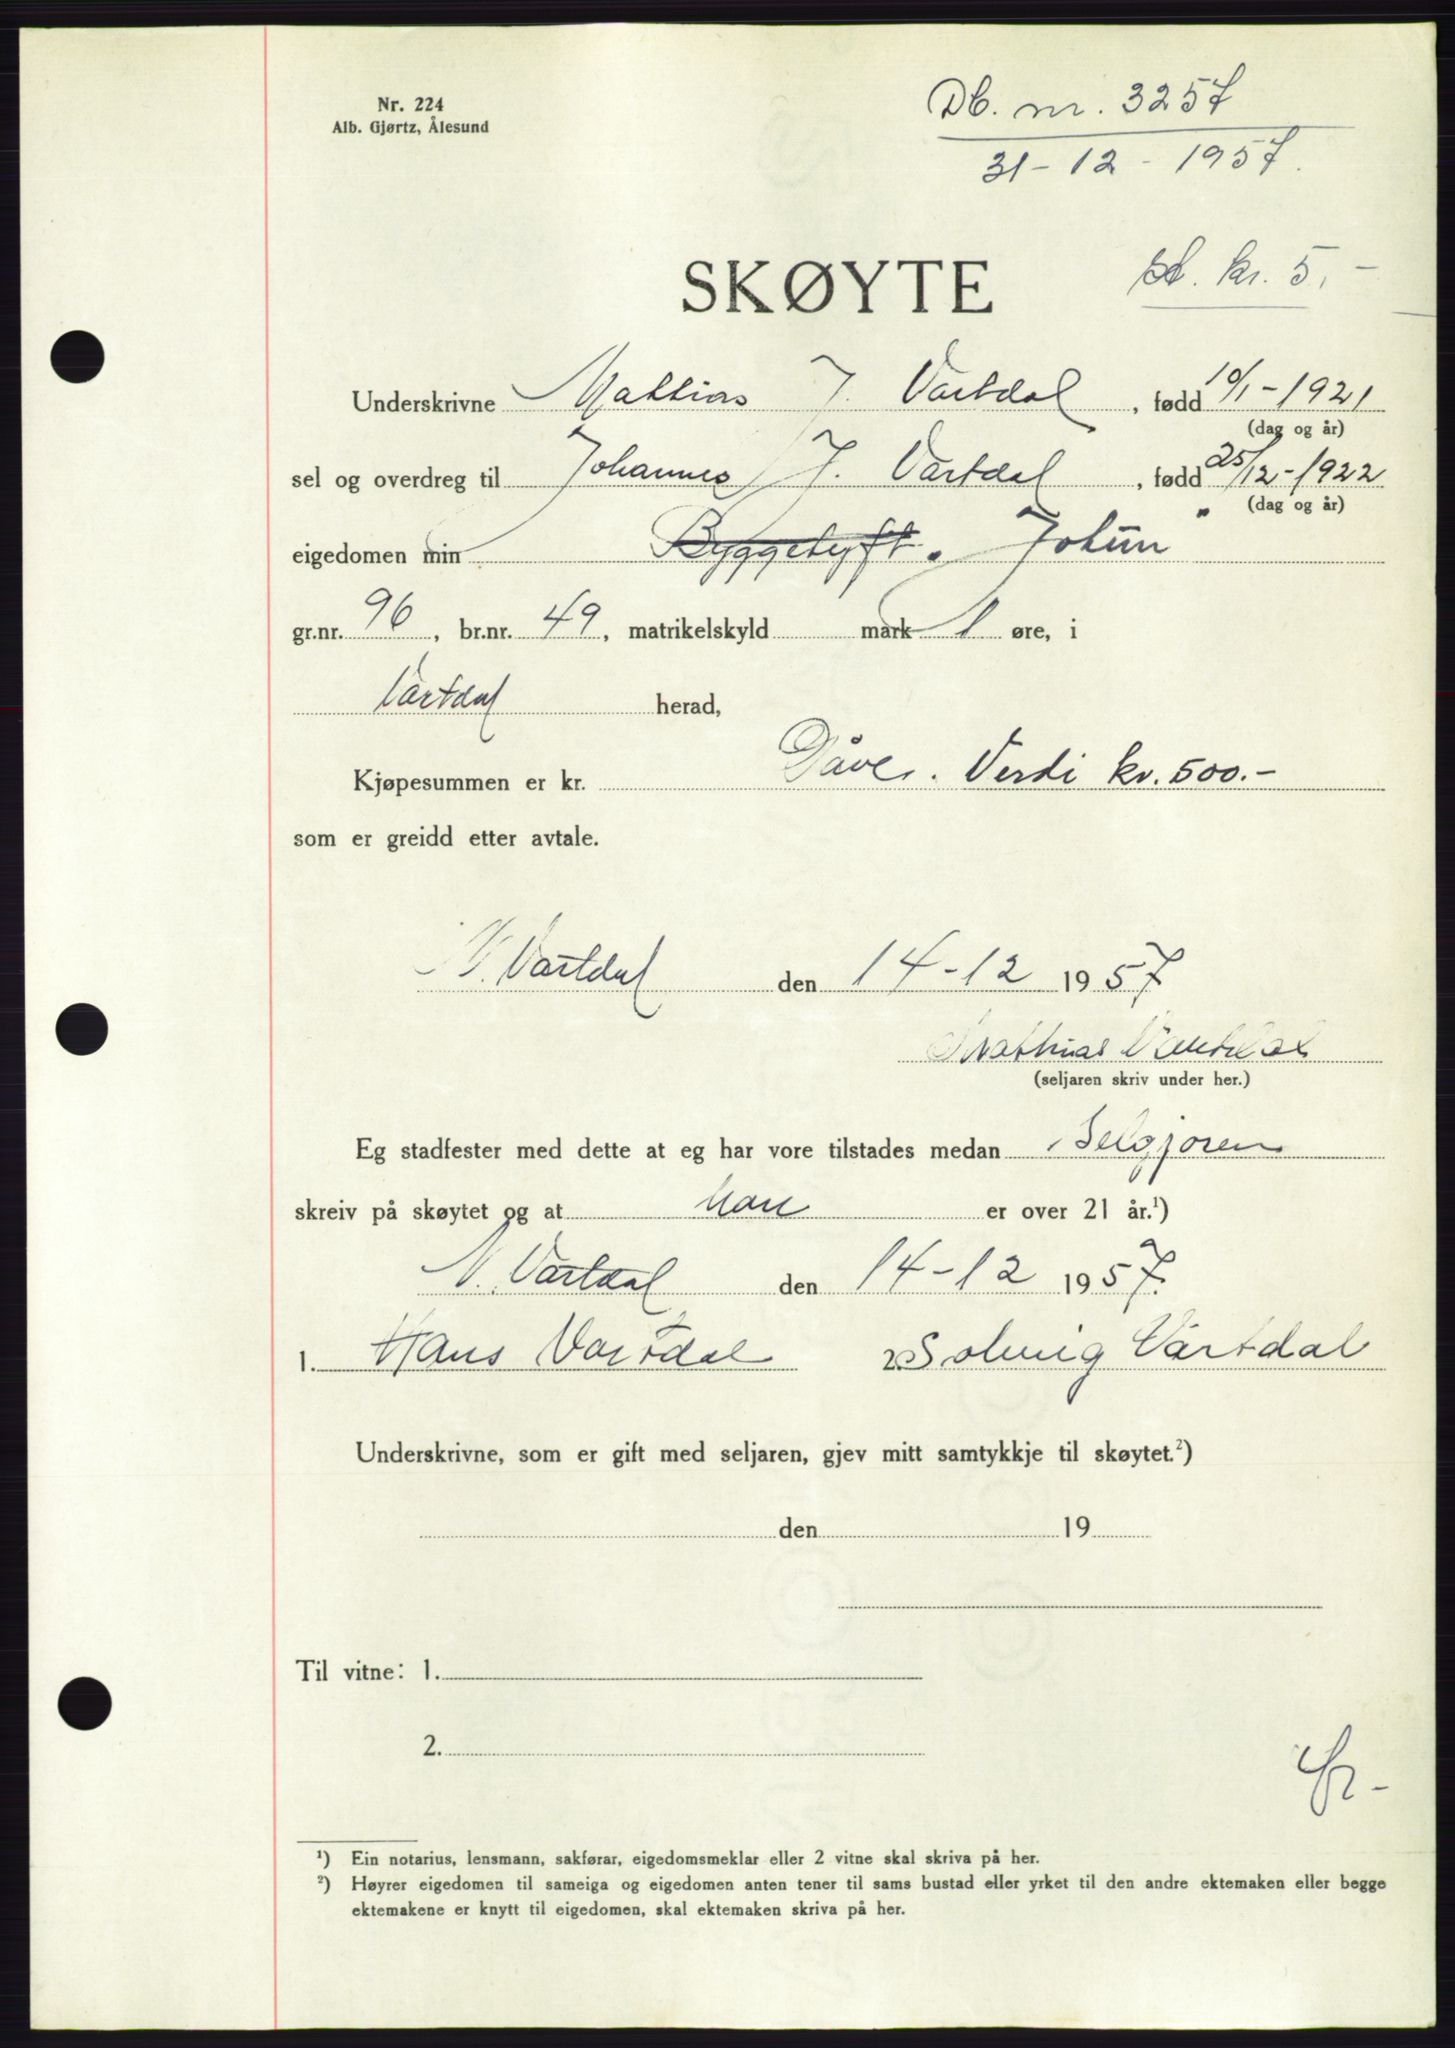 Nr. 224
Alb. Gjørtz, Ålesund
Db. nr. 3257
31-12-1957.
SKØYTE
st. kr. 5,-
Underskrivne Mathias J. Vartdal, fødd 10/1-1921
(dag og år)
sel og overdreg til Johannes J. Vartdal, fødd 25/12-1922
(dag og år)
eigedomen min Byggetyft.
gr.nr. 96, br.nr. 49, matrikelskyld mark 1 øre, i
Vartdal herad,
Kjøpesummen er kr. Gåve. Verdi kr. 500.-
som er greidd etter avtale.
N. Vartdal den 14-12 1957
Mathias Vartdal
(seljaren skriv under her.)
Eg stadfester med dette at eg har vore tilstades medan Selgjaren
skreiv på skøytet og at han er over 21 år.¹)
N. Vartdal den 14-12 1957.
1. Hans Vartdal 2. Solveig Vartdal
Underskrivne, som er gift med seljaren, gjev mitt samtykkje til skøytet.²)
den 19
Til vitne: 1.
2.
¹) Ein notarius, lensmann, sakførar, eigedomsmeklar eller 2 vitne skal skriva på her.
²) Høyrer eigedomen til sameiga og eigedomen anten tener til sams bustad eller yrket til den andre ektemaken eller begge
ektemakene er knytt til eigedomen, skal ektemaken skriva på her.